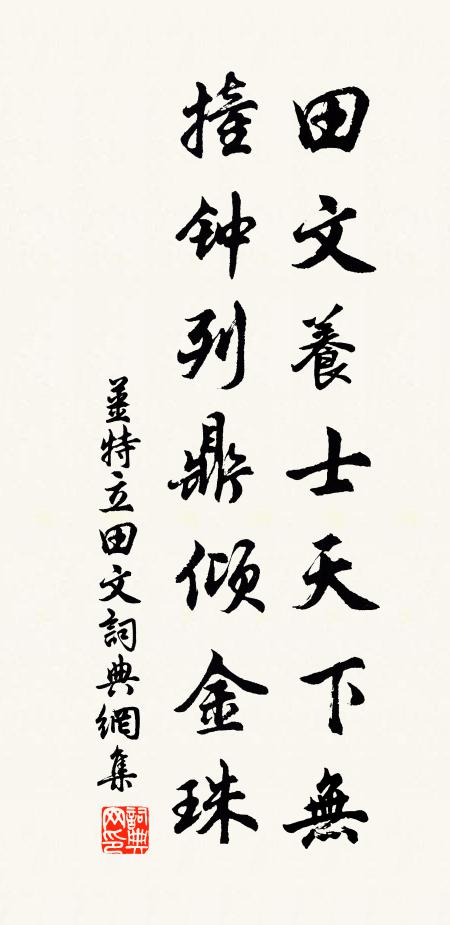 田文養士天下無
撞钟列鼎傾金珠
姜特立田文詞典網集
詞典网印